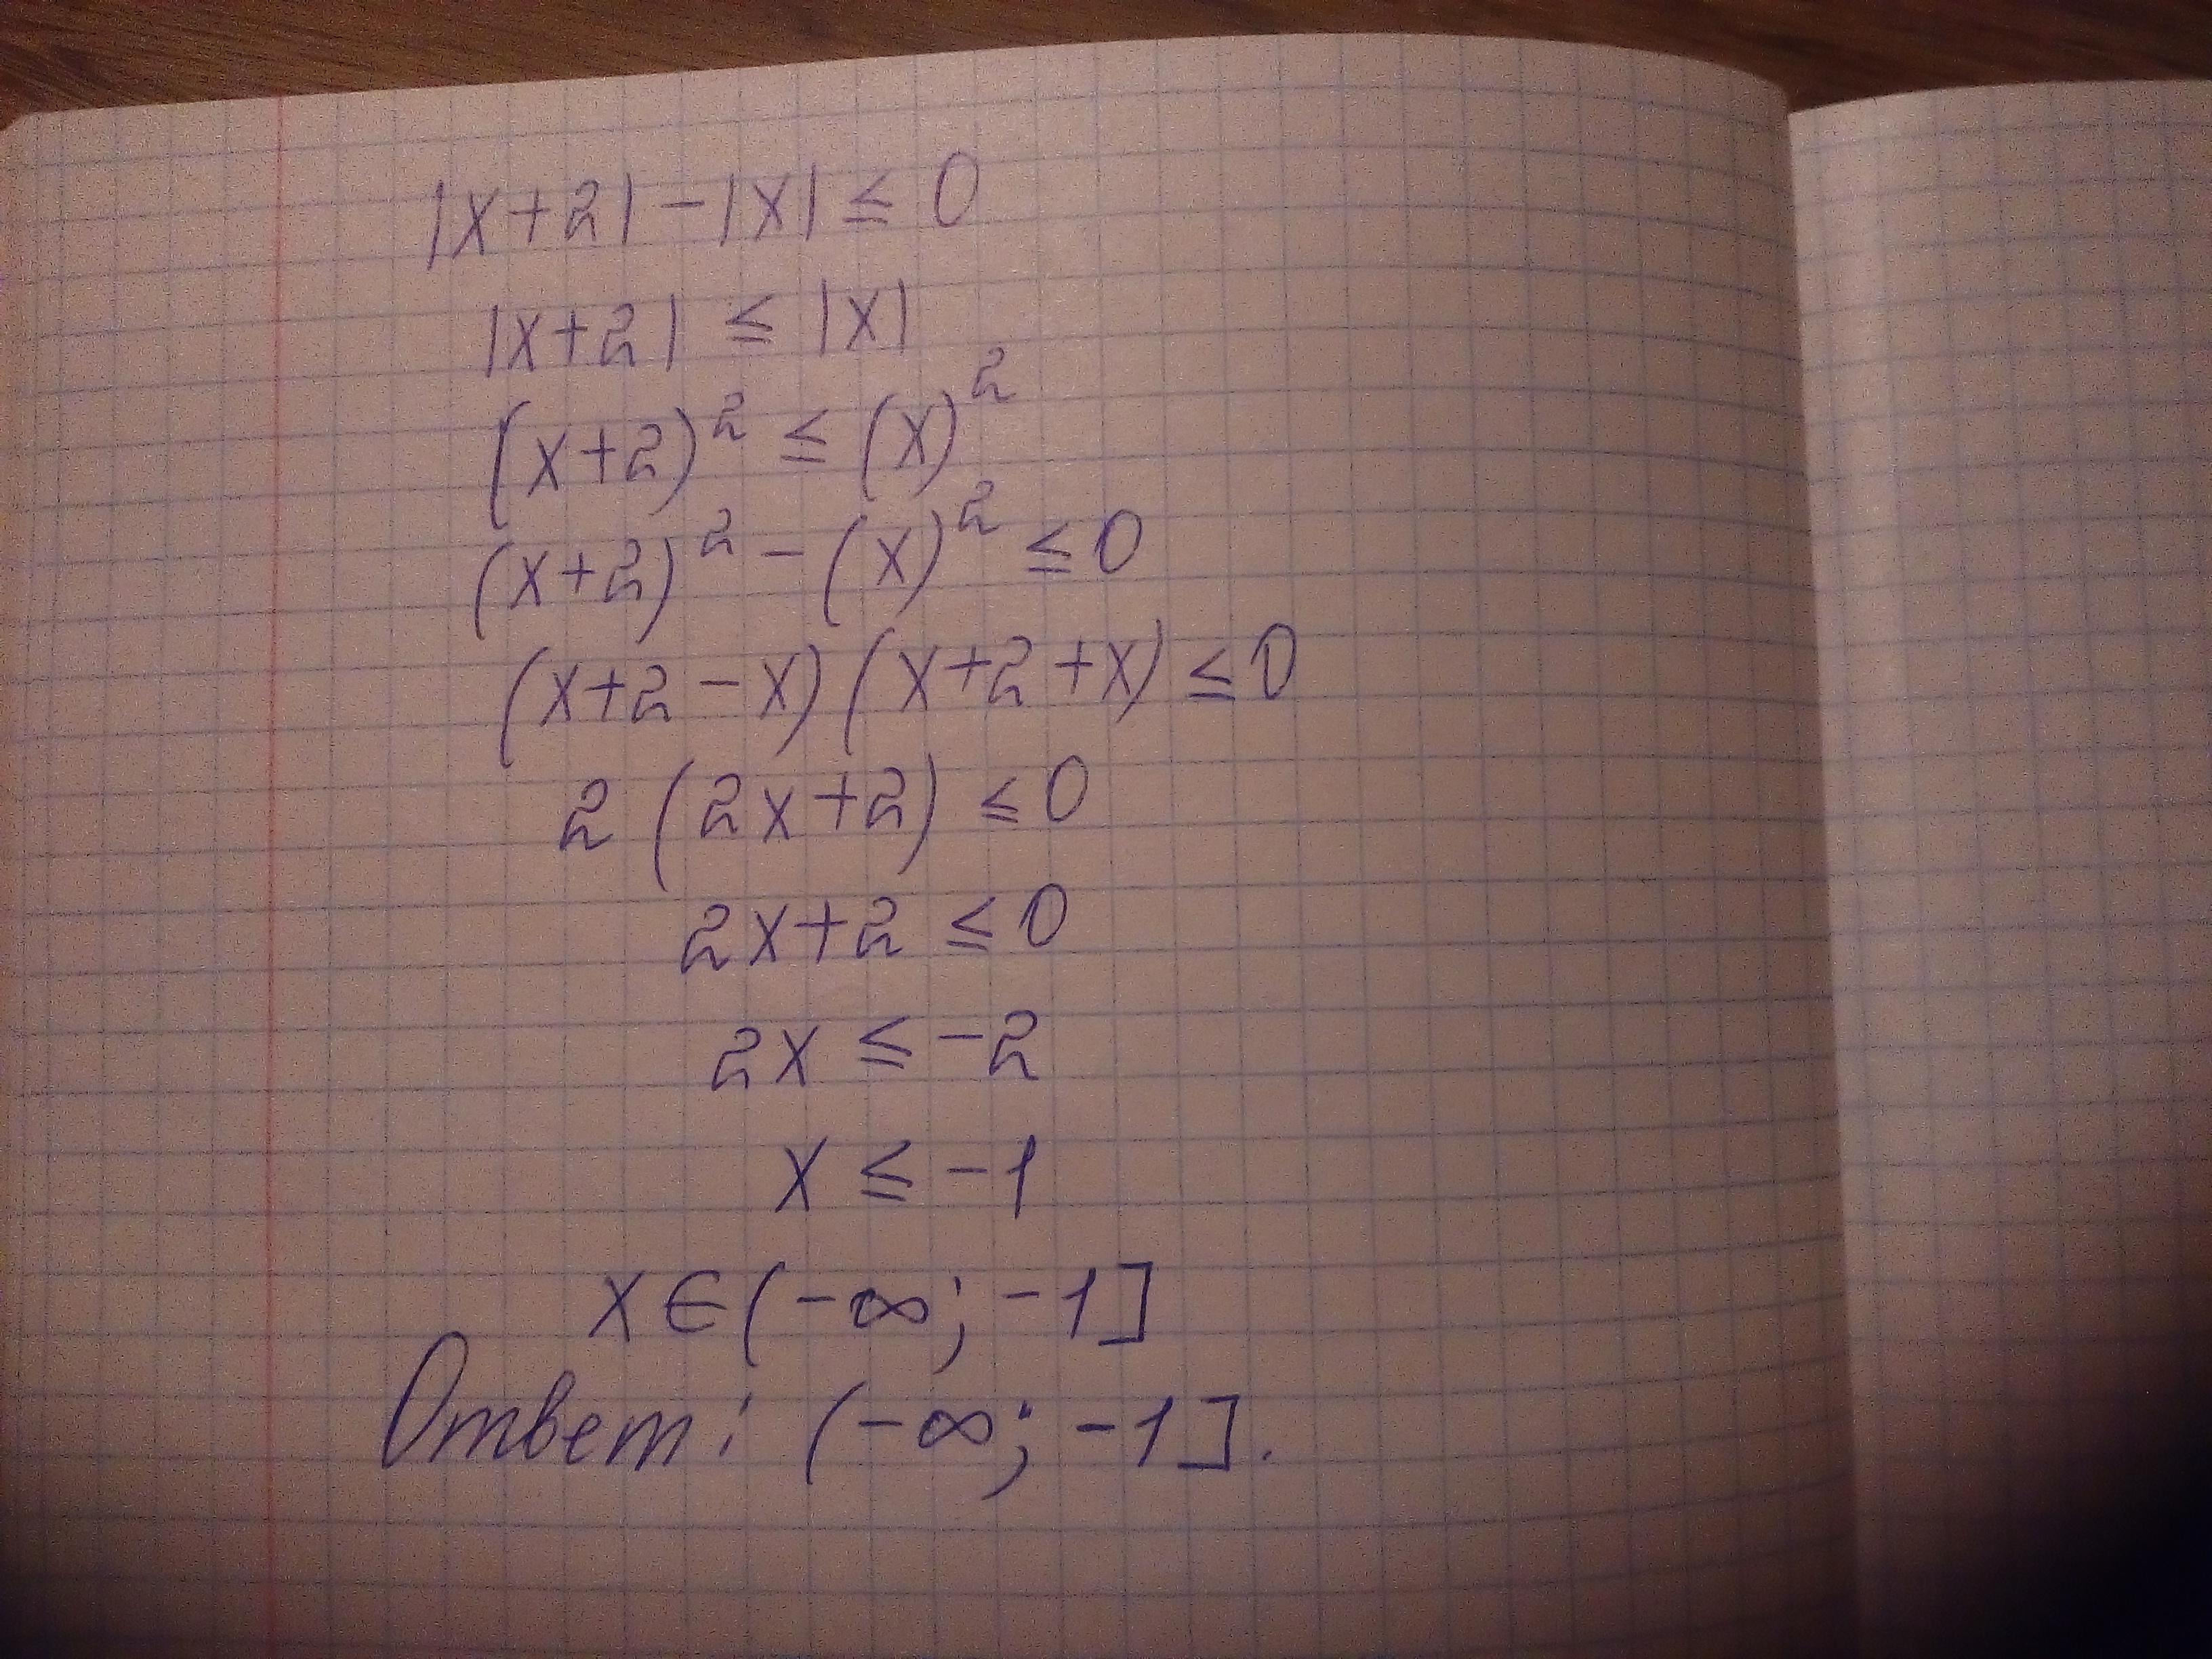 |x+2|-|x| ≤ 0
|x+2| ≤ |x|
(x+2)² ≤ (x)²
(x+2)² - (x)² ≤ 0
(x+2-x)(x+2+x) ≤ 0
2 (2x+2) ≤ 0
2x+2 ≤ 0
2x ≤ -2
x ≤ -1
x ∈ (-∞; -1]
Ответ: (-∞; -1].